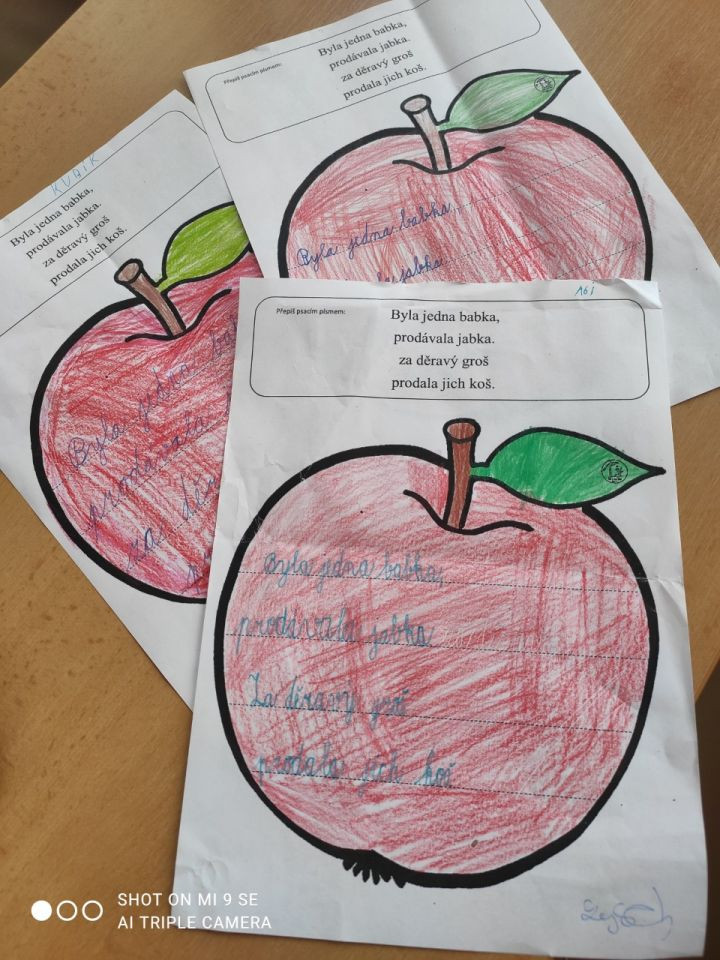 Přepiš psacím písmem:
Byla jedna babka,
prodávala jabka.
za děravý groš
prodala jich koš.
Byla jedna babka,
jabka
KUBIK
Byla jedna babka,
prodávala jabka.
za děravý groš
prodala jich koš.
Byla jedna
prodávala
za
Přepiš psacím písmem:
Byla jedna babka,
prodávala jabka.
za děravý groš
prodala jich koš.
Byla jedna babka,
prodávala jabka
Za děravý groš
prodala jich koš
SHOT ON MI 9 SE
AI TRIPLE CAMERA